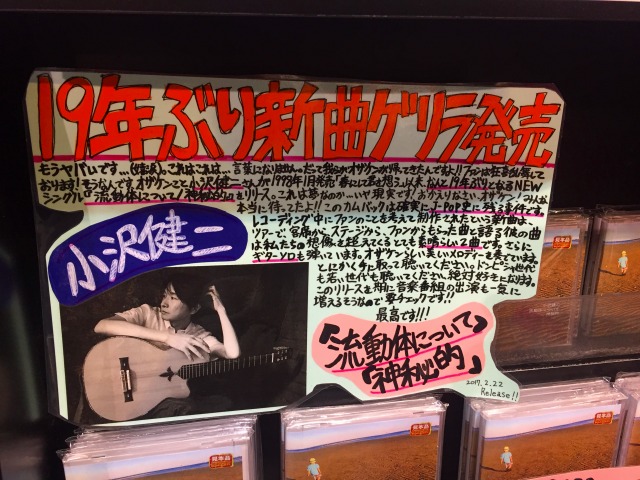 19年ぶり新曲ゲリラ発売
もうヤバいです…(嬉涙)。これはこれは…言葉になりませんっだって我らがオザケンが帰ってきたんですよ!!ファンは狂喜乱舞して
おります!そうなんです オザケンこと小沢健二さんが1998年1月発売「春にして君を想う」以来、なんと19年ぶりとなるNEW
シングル『流動体について/神秘的』をリリース。これは夢なのかーいや現実です!おかえりなさい、オザケン。みんな
本当に待ってたよ!!このカムバックは確実にJ-POP史に残る事件です。
レコーディング中にファンのことを考えて制作されたという新曲は、
ツアーで客席から、ステージから、ファンからもらった曲と語る彼の曲
は私たちの想像を超えてくるとても素晴らしい2曲です。さらに
ギターソロも弾いています。オザケンらしい美しいメロディーを奏でています。
とにかく手に取って聴いてください。ドンピシャ世代
も若い世代も聴いてください。絶対好きになります。
このリリースを期に音楽番組の出演も一気に
増えそうなので要チェックです!!
最高です!!!
小沢健二
『流動体について』
『神秘的』
2017.2.22
Release!!
見本品
見本品
見本品
見本品